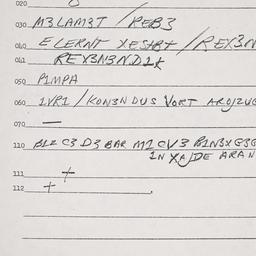 020
030 M3LAM3T / REB3
040 ELERNT XESHT / REX3N
041 REX3N3ND1K
050 P1MPA
060 1VR1 / KON3NDUS VORT AROJZUG
070 —
110 B12 C3 D3 BAR M1 CV3 P1N3XG3G
1N XAJDE ARAN
111 +
112 +